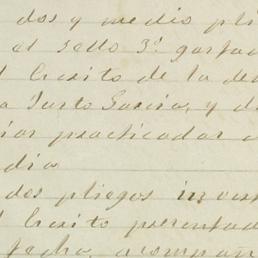 dos y medio pli
al sello 3º gasta
l escrito de la de
a Justo García, y d
practicados
dia
dos pliegos inver
l escrito presentad
fecha, acompañ